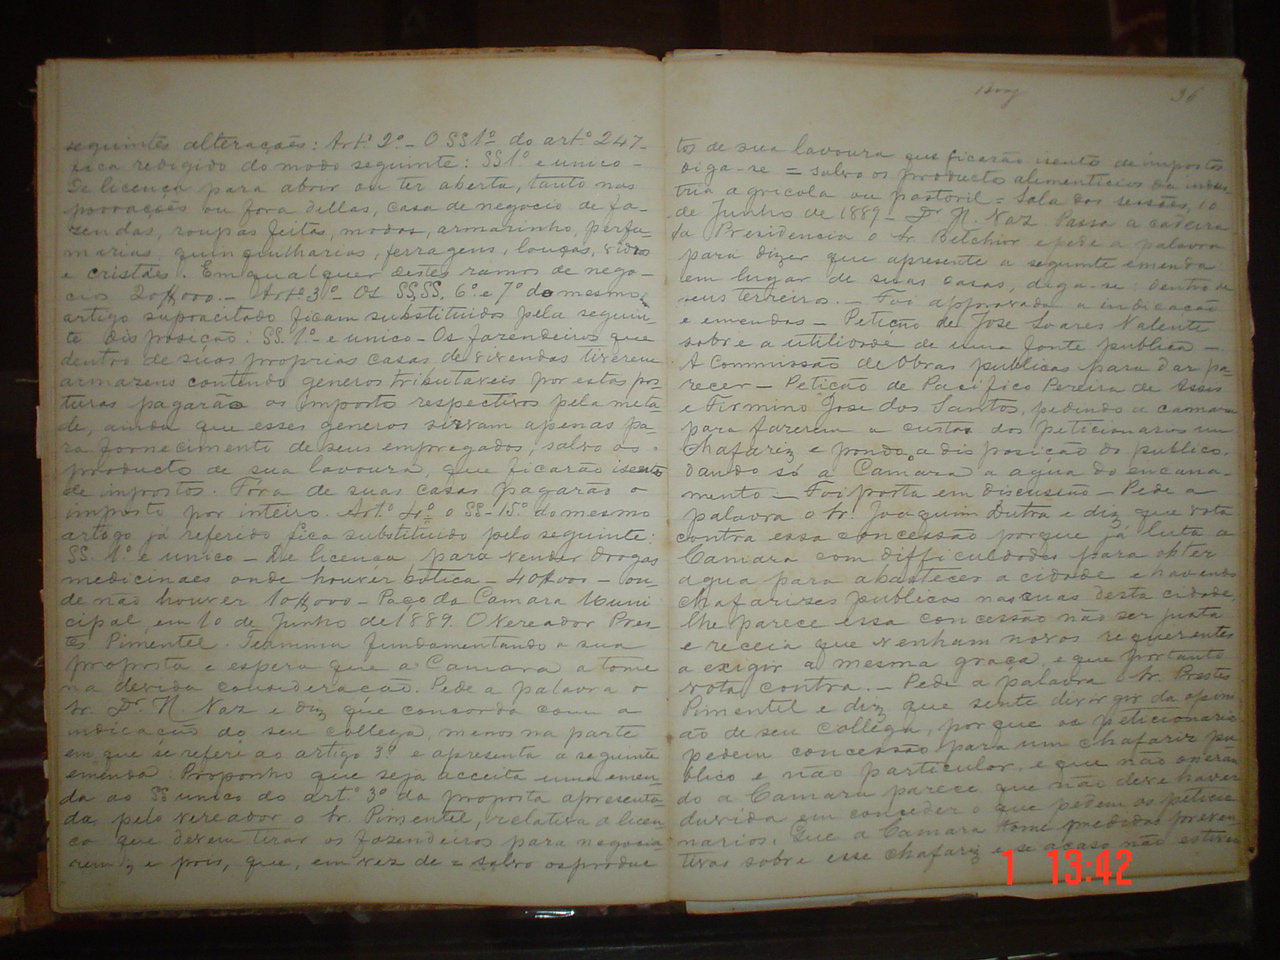 seguintes alterações: Art.º 2.º – O SS 1.º do art.º 247-
fica redigido do modo seguinte: SS 1.º e unico –
De licença para abrir ou ter aberta, tanto nas
povoações ou fora dellas, casa de negocio de fa-
zendas, roupas feitas, modas, armarinho, perfu-
marias, quinquilharias, ferragens, louças, vidros
e cristáes. Em qualquer destes ramos de nego-
cios 20$000. – Art.º 3.º – Os SS,SS, 6.º e 7.º do mesmo
artigo supracitado ficam substituidos pela seguin-
te disposição: SS. 1.º – e unico – Os fazendeiros que
dentro de suas proprias casas de vivendas tiverem
armazens contendo generos tributaveis por estas pos-
turas pagarão os imposto respectivos pela meta-
de, ainda que esses generos sirvam apenas pa-
ra fornecimento de seus empregados, salvo os
producto de sua lavoura, que ficarão isento
de impostos. Fóra de suas casas pagarão o
imposto por inteiro. Art.º 4.º o SS – 15.º do mesmo
artigo já referido fica substituido pelo seguinte:
SS. 1.º e unico – De licença para vender drogas
medicinaes onde houver botica – 40$000 – on-
de não houver 10$000 – Paço da Camara Muni
cipal, em 10 de Junho de 1889. O Vereador Pres-
tes Pimentel. Termina fundamentando a sua
proposta e espera que a Camara a tome
na devida consideração. Pede a palavra o
Sr. Dr. N. Naz e diz que concorda com a
indicação do seu collega, menos na parte
em que se refere ao artigo 3.º e apresenta a seguinte
emenda: Proponho que seja acceita uma emen-
da ao SS unico do art.º 3.º da proposta apresenta-
da pelo vereador o Sr. Pimentel, relativa a licen-
ça que devem tirar os fazendeiros para negocia
rem, e pois, que, em vez de = salvo os produc
36
tos de sua lavoura que ficarão isento de impostos
diga-se = salvo os productos alimenticios da indus-
tria agricola ou pastoril = Sala das sessões, 10
de Junho de 1889 – Dr. N. Naz Passa a cadeira
da Presidencia o Sr. Belchior e pede a palavra
para dizer que apresente a seguinte emenda:
em lugar de suas casas, diga-se: dentro de
seus terreiro. – Foi approvada a indicação
e emendas – Petição de Jose Soares Valente
sobre a utilidade de uma fonte publica –
A Commissão de Obras publicas para dar pa-
recer – Petição de Pacifico Pereira de Assis
e Firmino Jose dos Santos, pedindo a camara
para fazerem a custa dos peticionarios um
chafariz e pondo a disposição do publico,
dando só a Camara a agua do encana-
mento – Foi posta em discusão – Pede a
palavra o Sr. Joaquim Dutra e diz que vota
contra essa concessão porque já luta a
Camara com difficuldades para obter
agua para abastecer a cidade e havendo
chafarizes publicos nas ruas desta cidade,
lhe parece essa concessão não ser justa
e receia que venham novos requerentes
a exigir a mesma graça, e que portanto
vota contra. – Pede a palavra o Sr. Prestes
Pimentel e diz que sente divergir da opini
ão de seu collega, porque os peticionario
pedem concessão para um chafariz pu
blico e não particular, e que não oneran
do a Camara parece que não deve haver
duvida em conceder o que pedem os peticio
narios. Que a Camara tome medidas preven
tivas sobre esse chafariz e se acaso não estiver
1 13:42